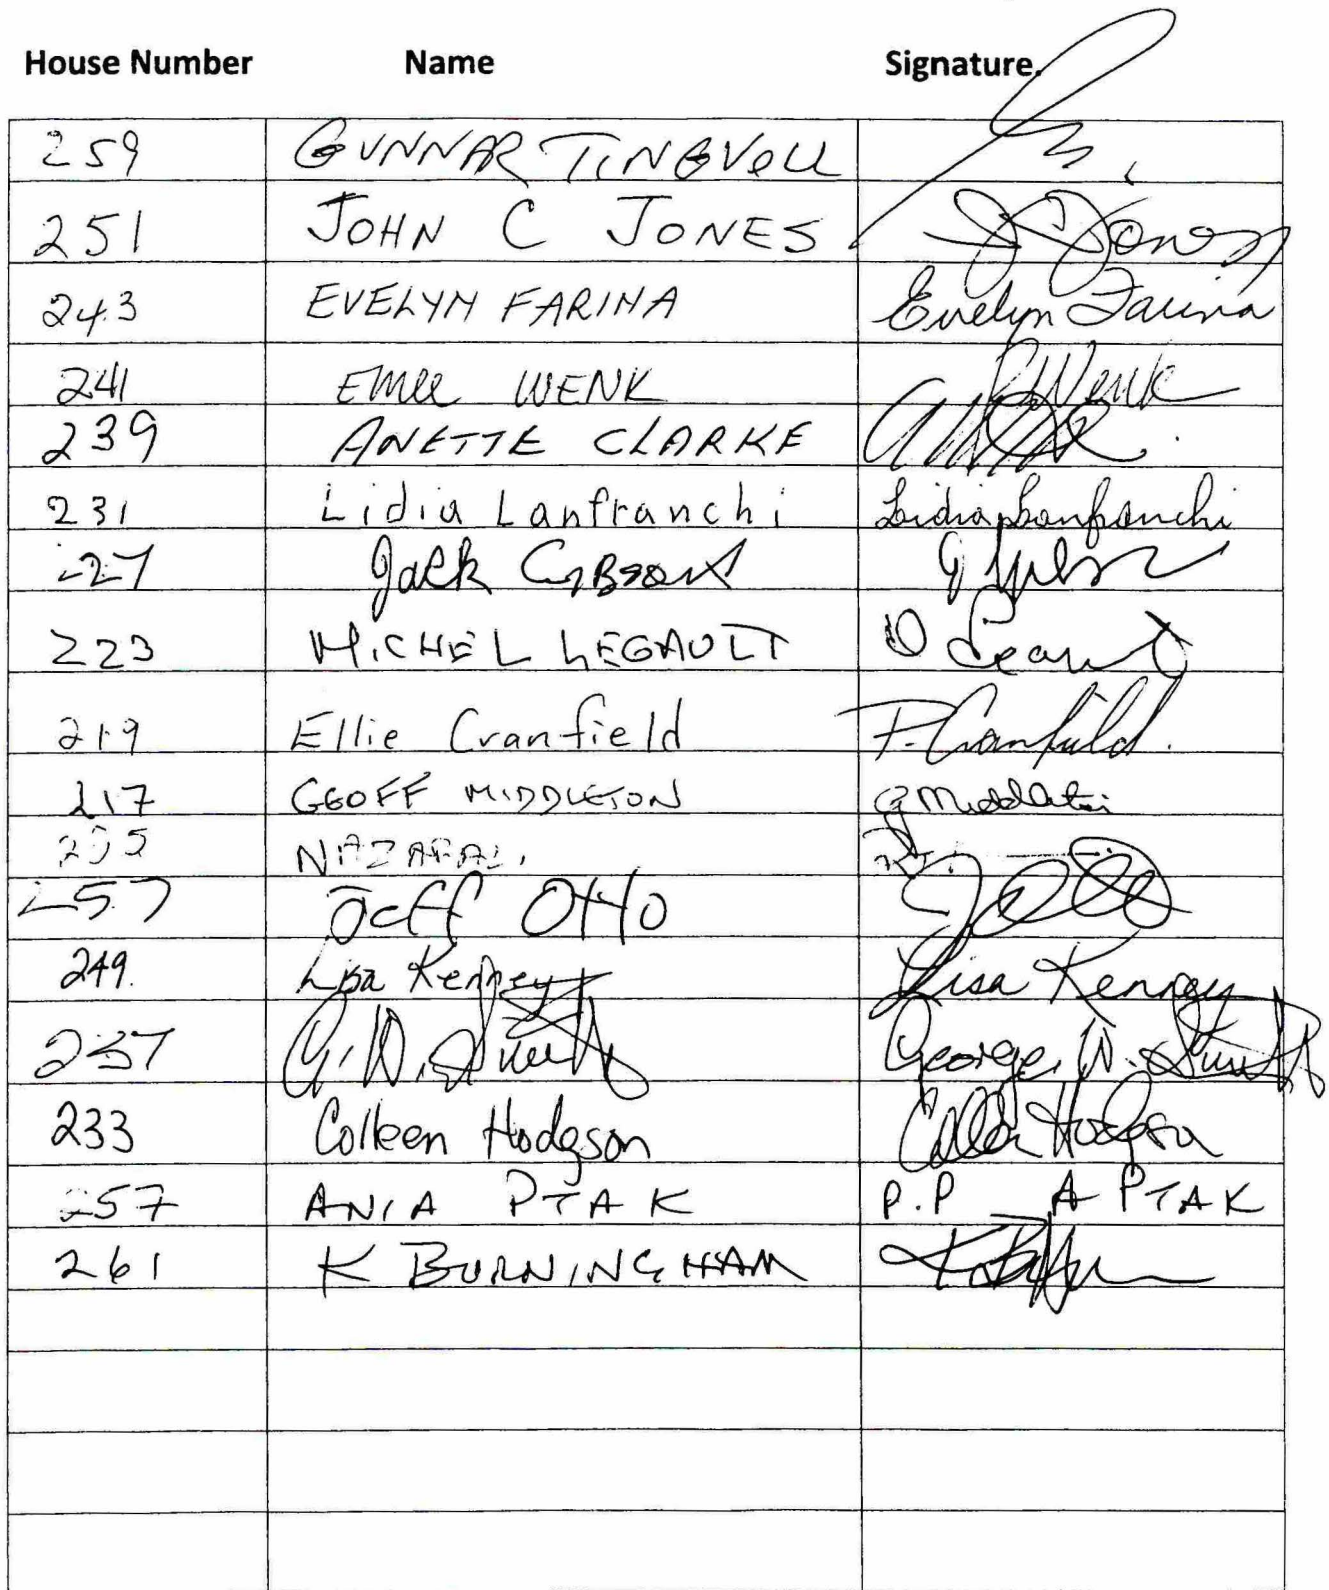 House Number Name Signature
259 GUNNAR TINGVOLL
251 JOHN C JONES J Jones
243 EVELYN FARINA Evelyn Farina
241 EMILE WENK E Wenk
239 ANETTE CLARKE
231 Lidia Lanfranchi Lidia Lanfranchi
227 Jack Gibson J Gibson
223 MICHEL LEGAULT
219 Ellie Cranfield P. Cranfield.
217 GEOFF MIDDLETON G Middleton
NAZARALI
257 Jeff Otto
249. Lisa Kenney Lisa Kenney
237 G. W. Smith George. W. Smith
233 Colleen Hodgson Colleen Hodgson
257 ANIA PTAK P.P A PTAK
261 K BURNINGHAM